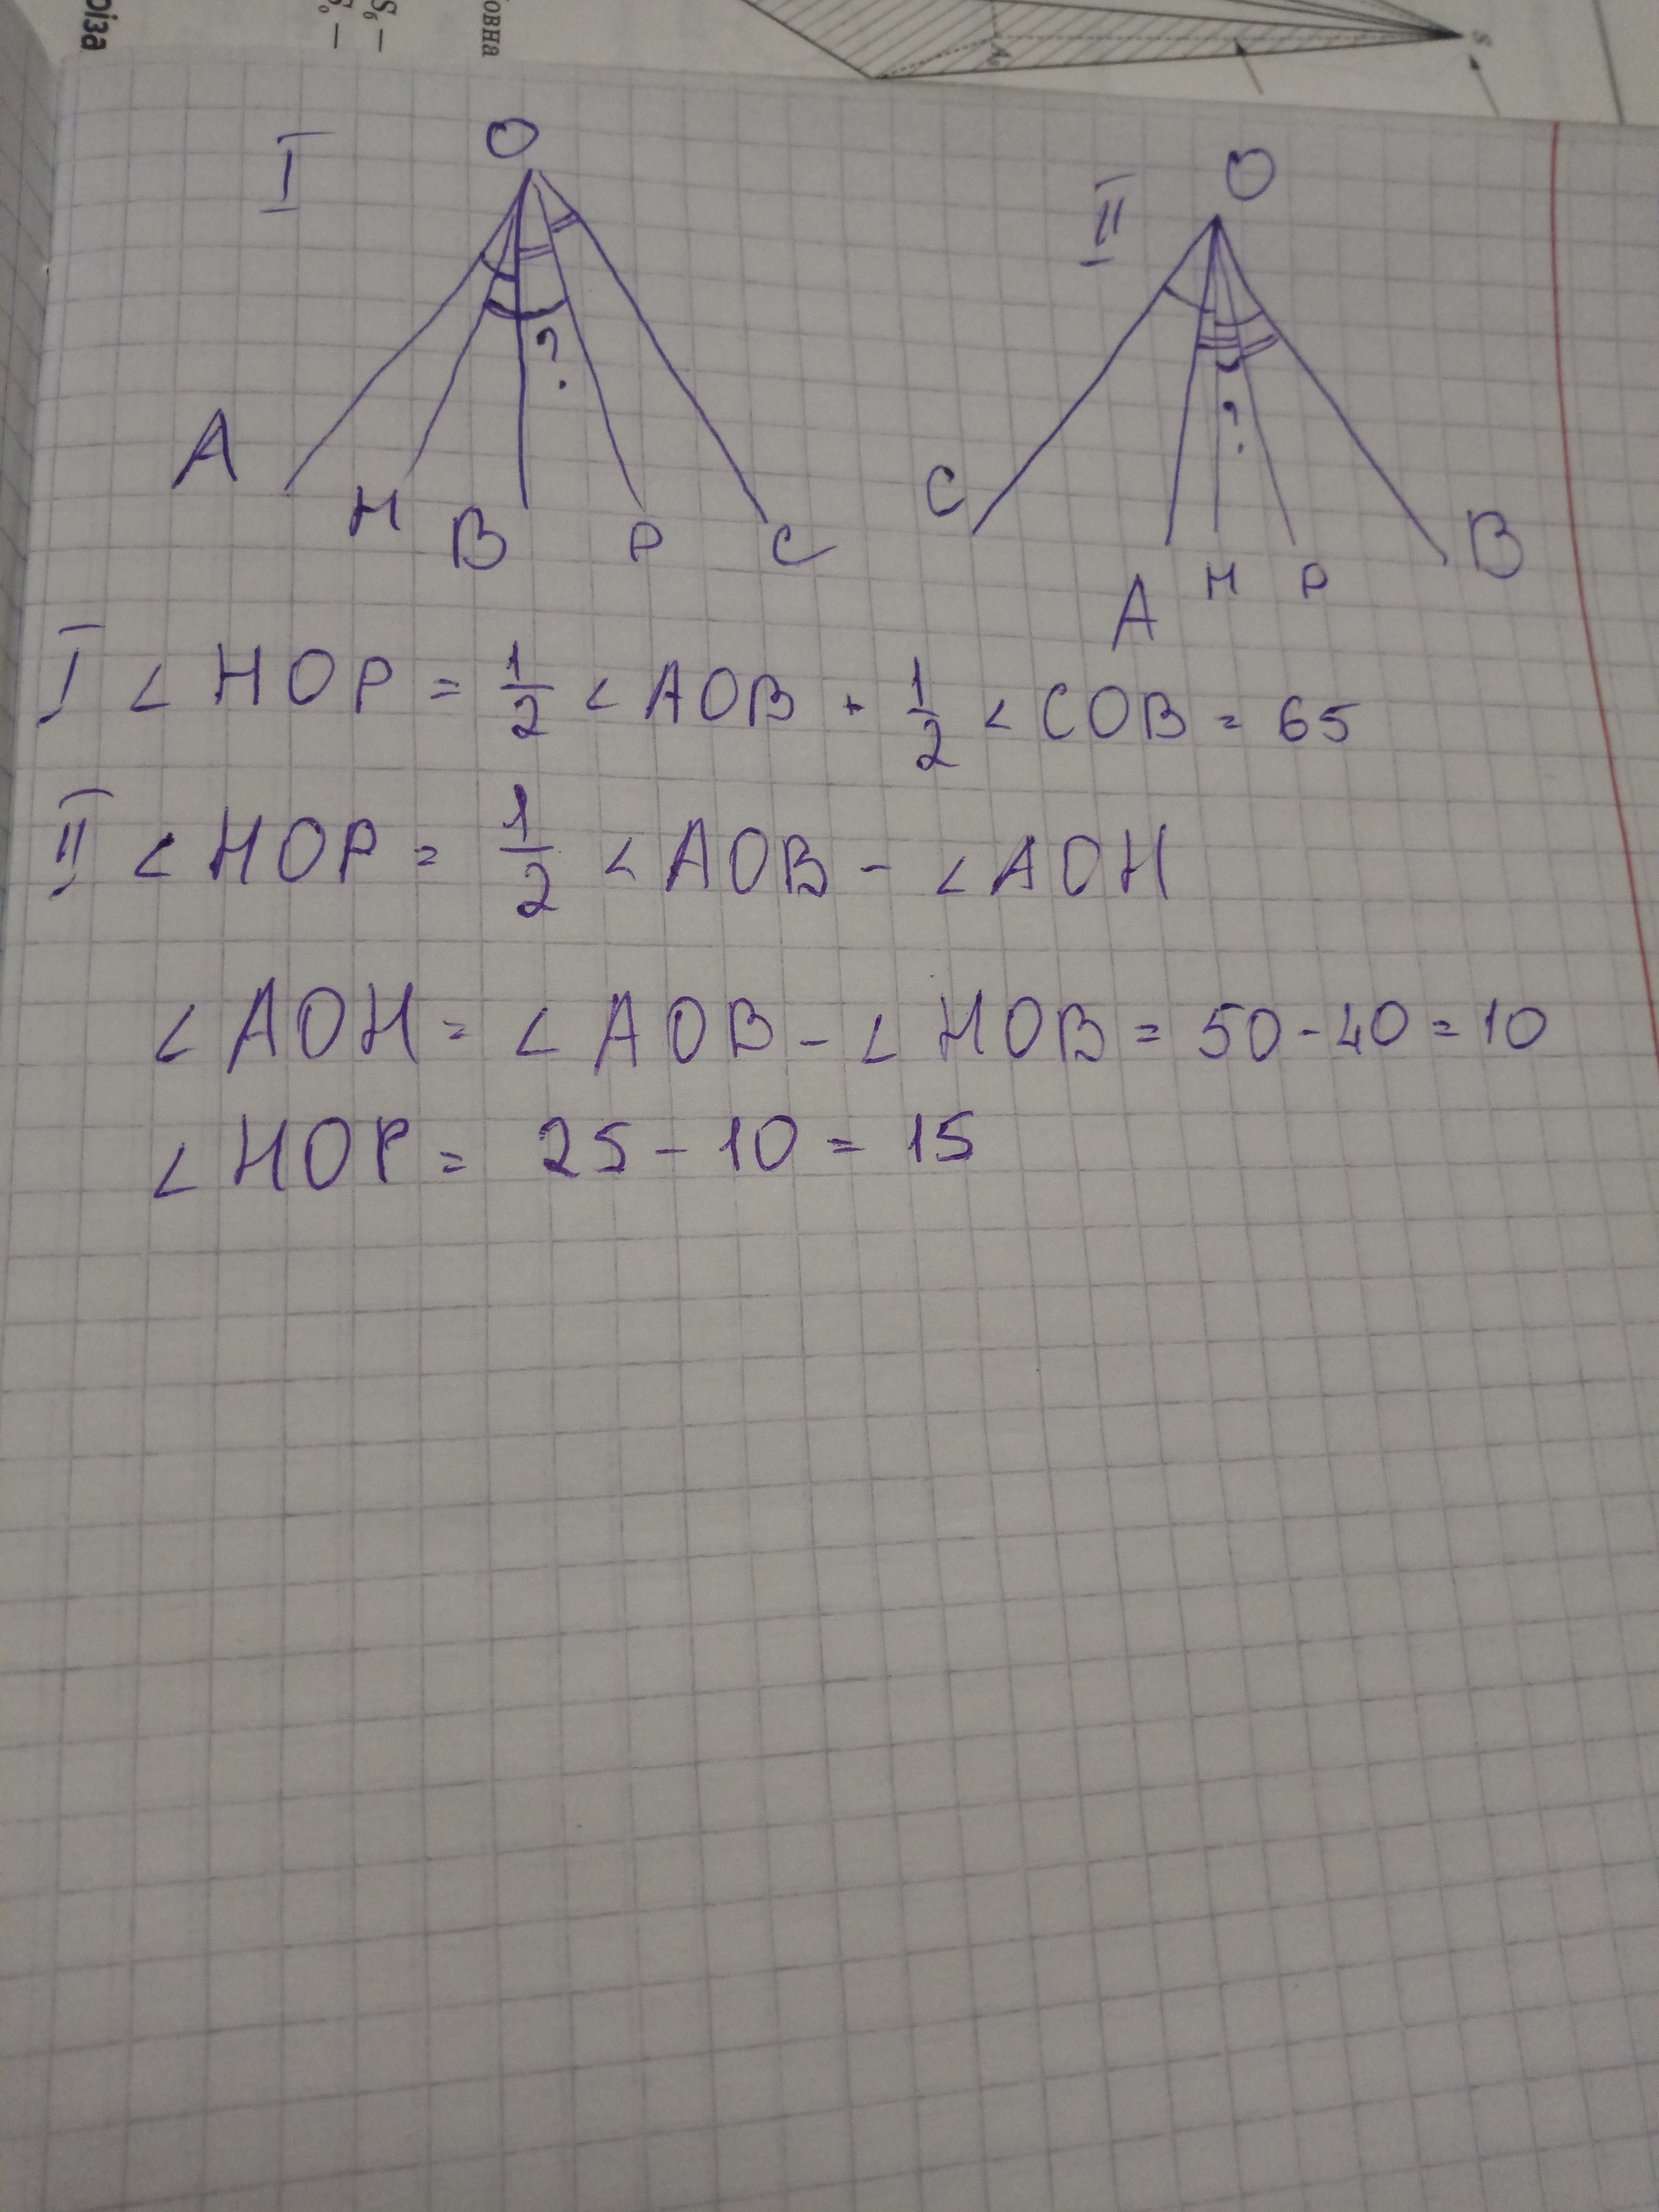 різа
S₆ –
S₀ –
овна
A₀
S
I
O
A
H
B
P
C
II
O
C
A
H
P
B
I < HOP = 1/2 < AOB + 1/2 < COB = 65
II < HOP = 1/2 < AOB - < AOH
< AOH = < AOB - < HOB = 50 - 40 = 10
< HOP = 25 - 10 = 15
?
?